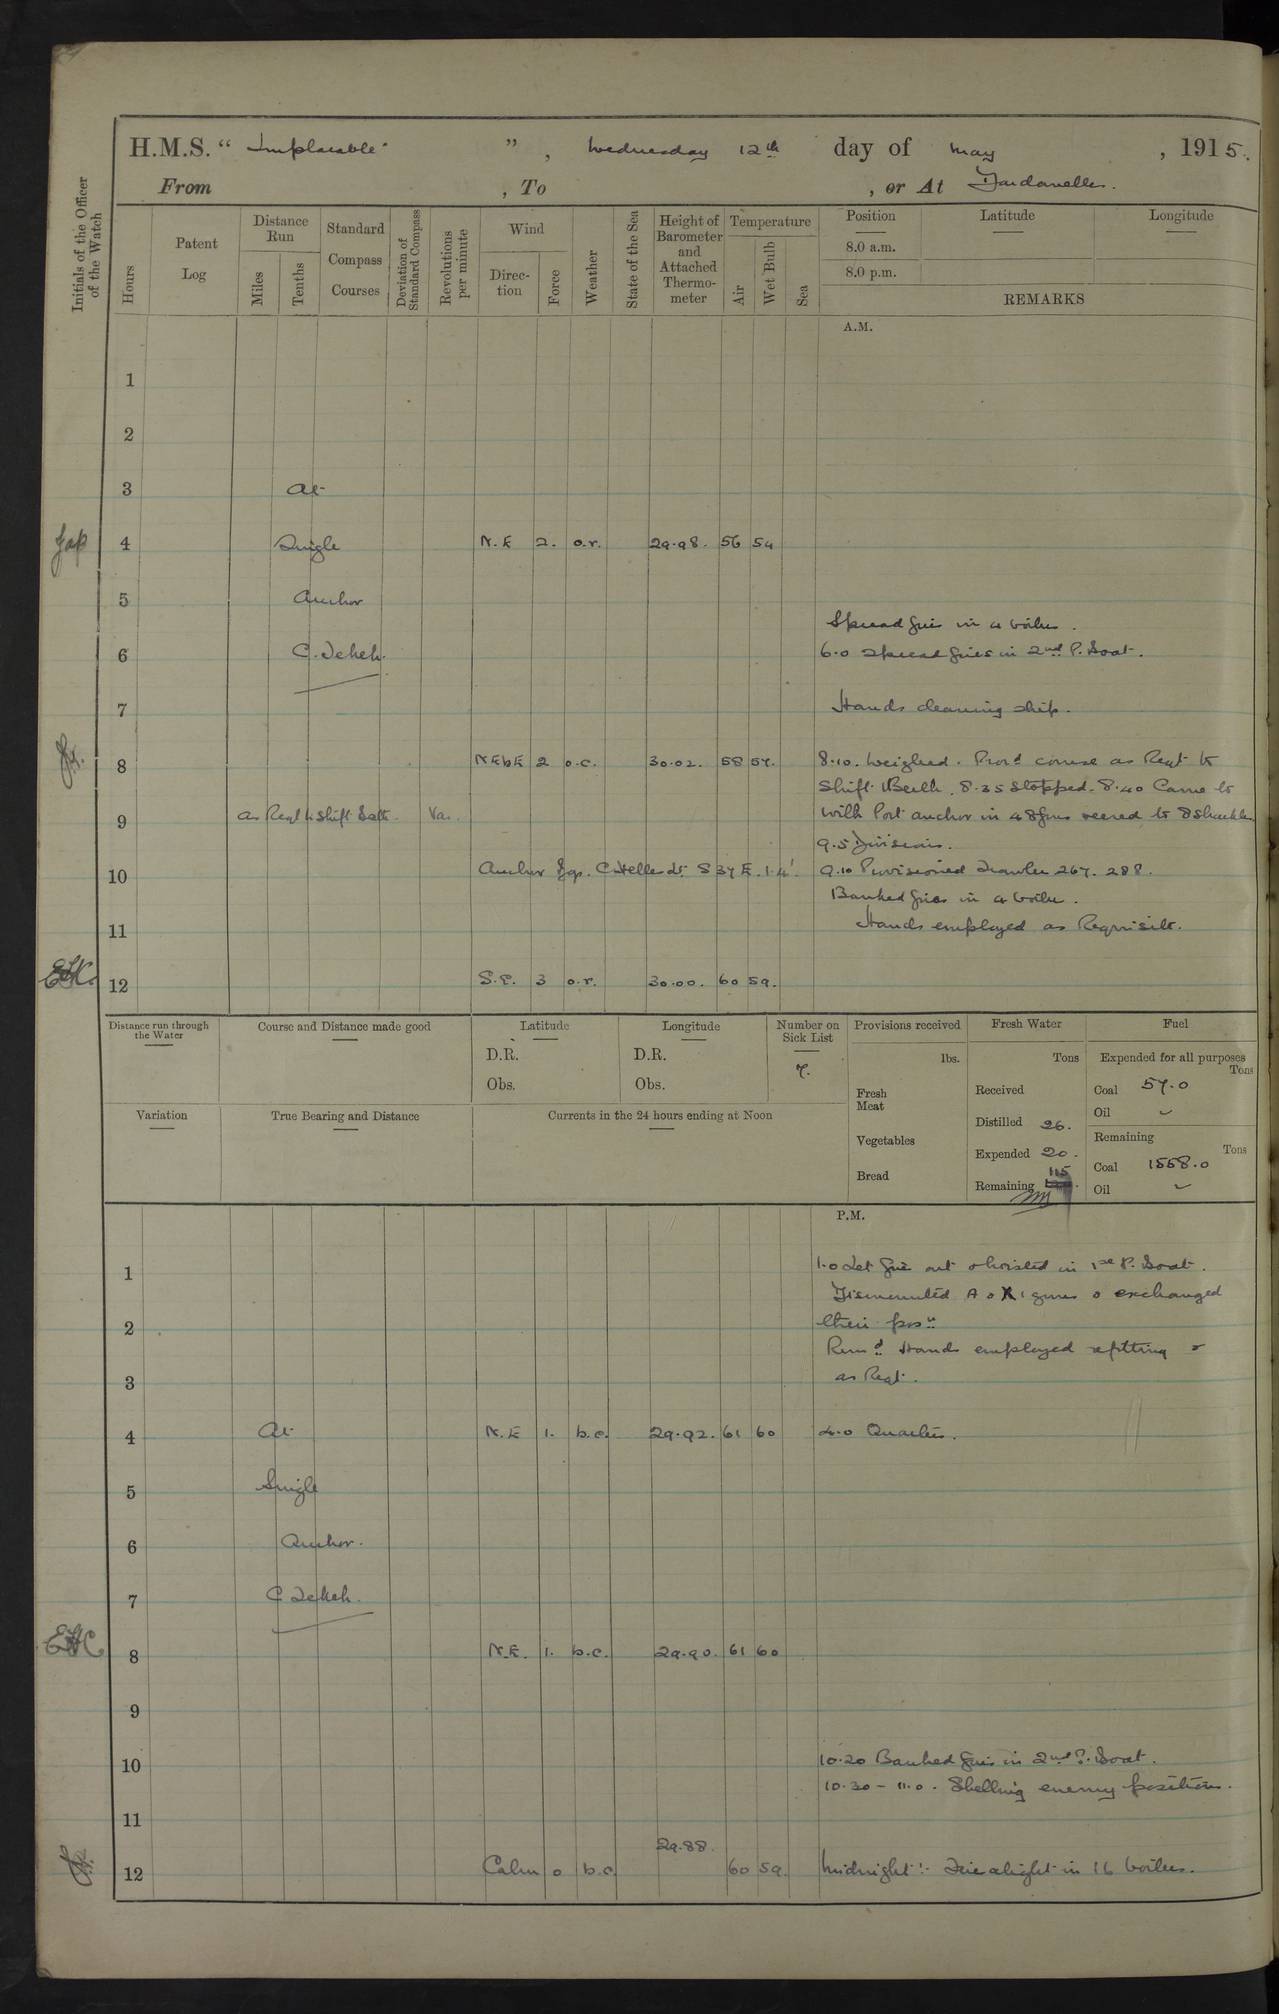 H.M.S. “ Implacable ” , Wednesday 12th day of May , 1915.
From , To , or At Dardanelles.
Initials of the Officer of the Watch
Hours
Patent Log
Distance Run
Miles
Tenths
Standard Compass Courses
Deviation of Standard Compass
Revolutions per minute
Wind
Direction
Force
Weather
State of the Sea
Height of Barometer and Attached Thermometer
Temperature
Air
Wet Bulb
Sea
Position Latitude Longitude
8.0 a.m.
8.0 p.m.
REMARKS
A.M.
1
2
3 At
4 Single N.E 2. o.r. 29.98. 56 54
5 Anchor
Spread fires in 4 boilers.
6 C. Tekeh. 6.0 Spread fires in 2nd P. Boat.
7 Hands cleaning ship.
8 NEbE 2 o.c. 30.02. 58 57. 8.10. Weighed. Proc'd course as Reqt to
Shift Berth. 8.35 Stopped. 8.40 Came to
9 as Reqt to Shift Berth. Var. with Port anchor in 48 fms veered to 8 shackles
9.5 Divisions.
10 Anchor Bgs. C. Helles Lt. S 37 E. 1.4'. 9.10 Provisioned Trawler 267. 288.
Banked fires in 4 boilers.
11 Hands employed as Requisite.
12 S.E. 3 o.r. 30.00. 60 59.
Distance run through the Water
Course and Distance made good
Latitude
D.R.
Obs.
Longitude
D.R.
Obs.
Number on Sick List
7.
Variation
True Bearing and Distance
Currents in the 24 hours ending at Noon
Provisions received
lbs.
Fresh Meat
Vegetables
Bread
Fresh Water
Tons
Received
Distilled 26.
Expended 20.
Remaining 115
Fuel
Expended for all purposes
Tons
Coal 57.0
Oil ~
Remaining
Tons
Coal 1558.0
Oil ~
P.M.
1 1.0 Let fires out & hoisted in 1st P. Boat.
Dismounted A & X 1 guns & exchanged
2 their posn
Remd Hands employed refitting &
3 as Reqt.
4 At N.E 1. b.c. 29.92. 61 60 4.0 Quarters.
5 Single
6 Anchor.
7 C Tekeh.
8 N.E. 1. b.c. 29.90. 61 60
9
10 10.20 Banked fires in 2nd P. Boat.
10.30 - 11.0. Shelling enemy positions.
11
29.88.
12 Calm 0 b.c 60 59. Midnight:- Fires alight in 16 boilers.